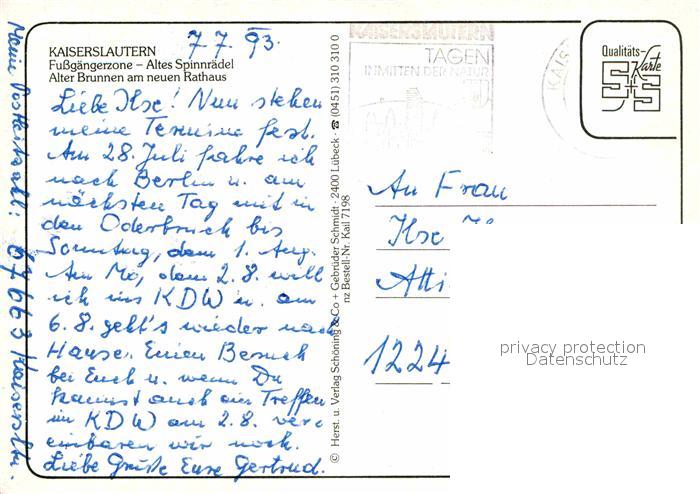 7.7.93.
KAISERSLAUTERN
Fußgängerzone – Altes Spinnrädel
Alter Brunnen am neuen Rathaus
Liebe Ilse! Nun stehen
meine Termine fest.
Am 28. Juli fahre ich
nach Berlin u. am
nächsten Tag mit in
den Oderbruch bis
Sonntag, dem 1. Aug.
Am Mo, dem 2.8. will
ich ins KDW u. am
6.8. geht's wieder nach
Hause. Einen Besuch
bei Euch u. wenn Du
kannst auch ein Treffen
im KDW am 2.8. ver
einbaren wir noch.
Liebe Grüße Eure Gertrud.
Meine Postleitzahl: 67663 Kaisersltn.
© Herst. u. Verlag Schöning & Co + Gebrüder Schmidt · 2400 Lübeck ☎ (0451) 310 310 0
nz Bestell-Nr. Kail 7198
KAISERSLAUTERN
TAGEN
INMITTEN DER NATUR
KAIS
Qualitäts-
Karte
S+S
An Frau
Ilse
Atti
1224
privacy protection
Datenschutz